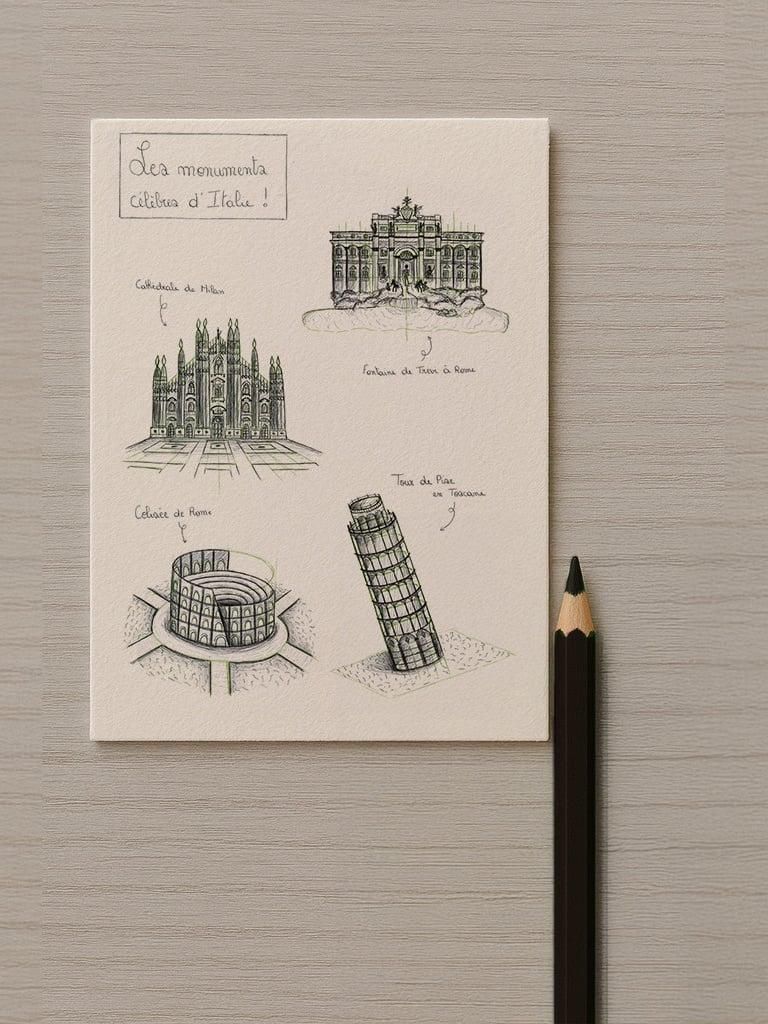 Les monuments
célèbres d'Italie !
Cathédrale de Milan
Fontaine de Trévi à Rome
Tour de Pise
en Toscane
Colisée de Rome